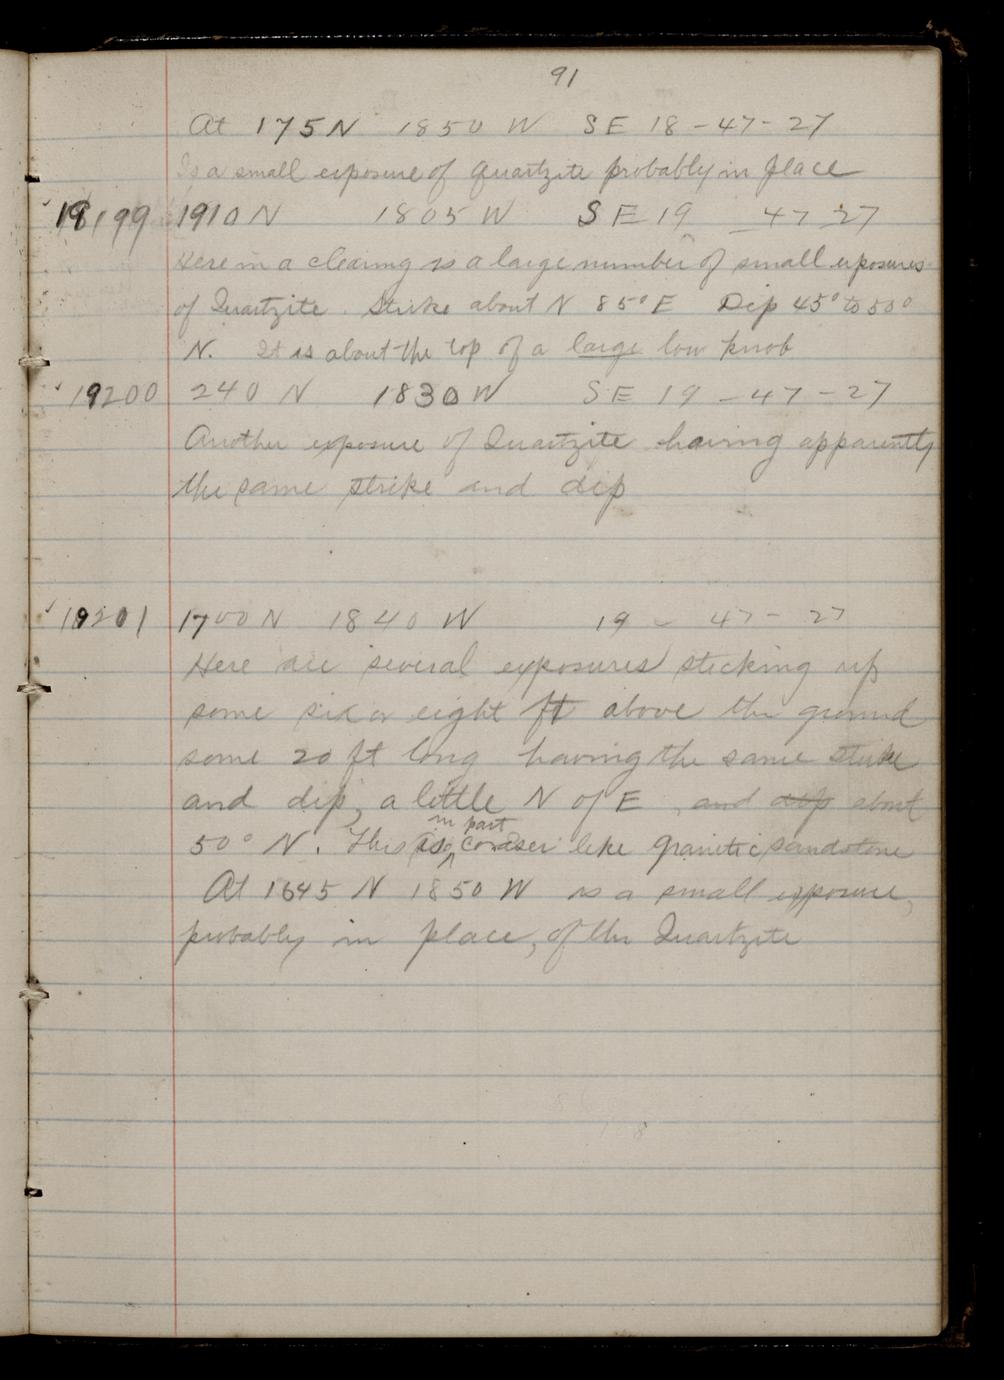 91
At 175 N 1850 W SE 18-47-27
Is a small exposure of Quartzite probably in place
19199 1910 N 1805 W SE 19 47 27
Here in a clearing is a large number of small exposures
of Quartzite. Strike about N 85° E Dip 45° to 50°
N. It is about the top of a large low knob
19200 240 N 1830 W SE 19 - 47 - 27
Another exposure of Quartzite having apparently
the same strike and dip
19201 1700 N 1840 W 19 - 47 - 27
Here are several exposures sticking up
some six or eight ft above the ground
some 20 ft long having the same strike
and dip, a little N of E, and dip about
in part
50° N. This is coarser like granitic sandstone
At 1645 N 1850 W is a small exposure,
probably in place, of the Quartzite